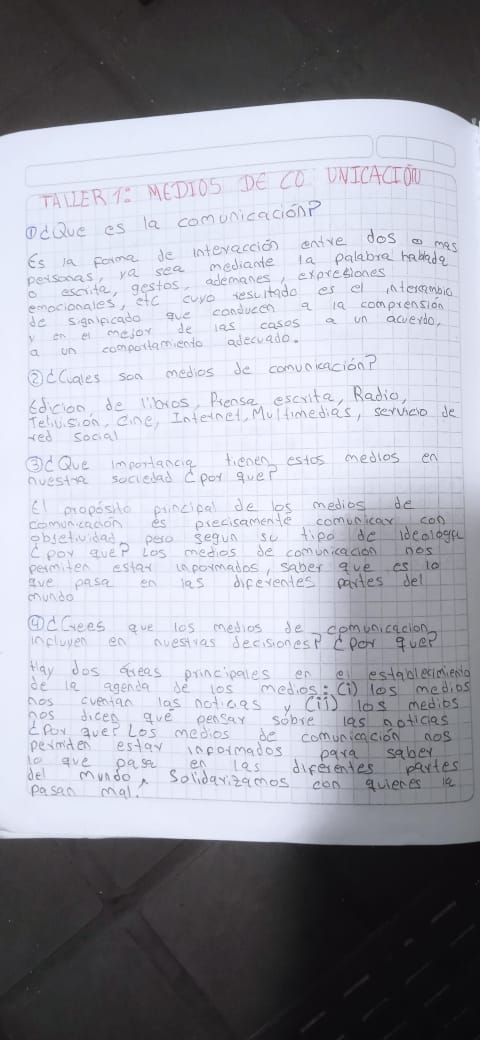 TALLER 1: MEDIOS DE CO UNICACIÓN
① ¿Que es la comunicación?
Es la forma de interacción entre dos o mas
personas, ya sea mediante la palabra hablada
o escrita, gestos, ademanes, expresiones
emocionales, etc cuyo resultado es el intercambio
de significado que conducen a la comprensión
y en el mejor de las casos a un acuerdo,
a un comportamiento adecuado.
② ¿Cuales son medios de comunicación?
Edicion de libros, Prensa escrita, Radio,
Telivisión, cine, Internet, Multimedias, servicio de
red social
③ ¿Que importancia tienen estos medios en
nuestra sociedad ¿por que?
El propósito principal de los medios de
comunicación es precisamente comunicar con
objetividad, pero segun su tipo de ideologia
¿por que? Los medios de comunicacion nos
permiten estar informados, saber que es lo
que pasa en las diferentes partes del
mundo
④ ¿Crees que los medios de comunicacion
incluyen en nuestras decisiones? ¿por que?
Hay dos áreas principales en el establecimiento
de la agenda de los medios: (i) los medios
nos cuentan las noticias y (ii) los medios
nos dicen que pensar sobre las noticias
¿por que? Los medios de comunicación nos
permiten estar informados para saber
lo que pasa en las diferentes partes
del mundo, Solidarizamos con quienes la
pasan mal.